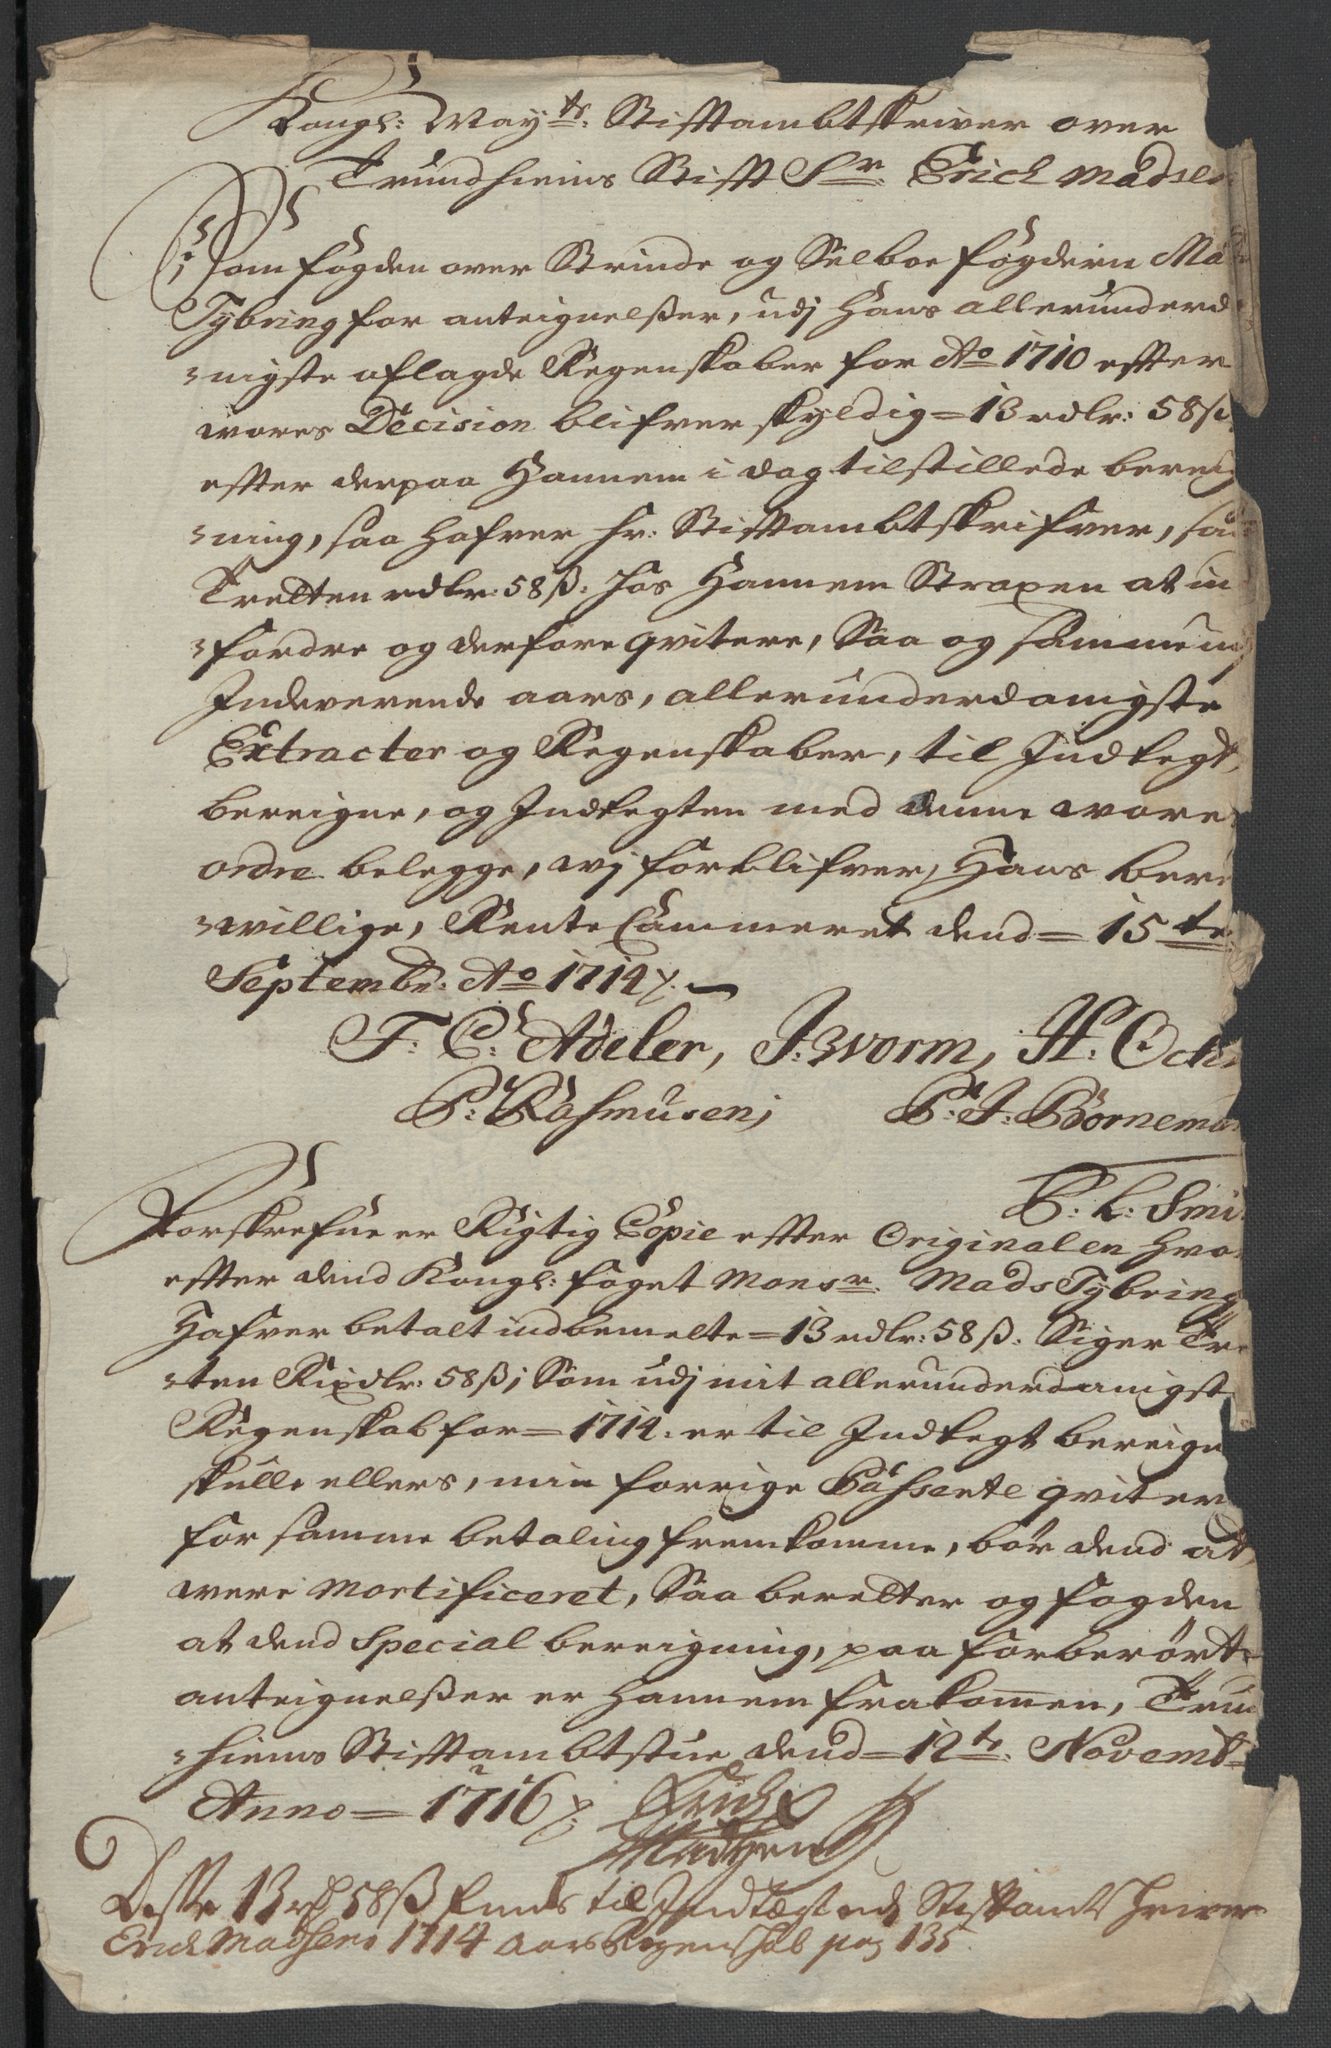 Kongl: May.ts: Stifftambtskriver over
Trundhiems Stifft Sr. Erich Madsen
Som fogden over Strinde og Selboe fogderie Ma
Tybring for anteignelßer, udj Hans allerunderd
-nigste aflagde Regenskaber for Ao 1710 effter
wores Decision blifver skyldig = 13 rdlr: 58 ß
effter derpaa Hannem i dag tilstillede bereig
-ning, saa hafver hr: Stifftambtskrifver, saa
Tretten rdlr: 58 ß. hos Hannem Straxen at in
-fordre og derfore qvitere, Saa og samme udj
Indeverende aars, allerunderdanigste
Extracter og Regenskaber, til Indtegt
bereigne, og Indtegten med denne wores
ordre belegge, wj forblifver, Hans bere
-willige, Rente Cammeret dend = 15 te
Septembr: Ao 1714 ⁒
F. C. Adeler, J: Worm, H. Ock
P: Rasmusen; P. J. Bornemann
C. L: Smi
Forskrefne er Rigtig Copie effter Originalen hvor
effter dend Kongl: foget Monsr. Mads Tybring
Hafver betalt indbemelte = 13 rdlr: 58 ß. Siger Tre
-ten Rixdlr: 58 ß; Som udj mit allerunderdanigst
Regenskab for = 1714. er til Indtegt bereigne
skulle ellers, min forrige Passerte qviter
for samme betaling fremkomme, bør dend at
were Mortificeret, Saa beretter og fogden
at dend Special bereigning, paa forberørte
anteignelßer er Hannem frakommen, Trund
-hiems Stifftambtstue dend = 12 te. Novembr
Anno = 1716 ⁒ Erich
Madsen
Disse 13 rd 58 ß findes til Indtægt udj Stiftamtskriver
Erich Madsens 1714 aars Regenskab pag 135